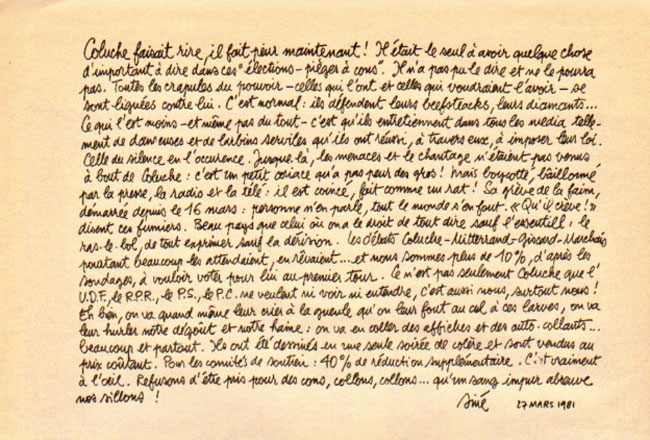 Coluche faisait rire, il fait peur maintenant ! Il était le seul à avoir quelque chose
d'important à dire dans ces "élections-pièges à cons". Il n'a pas pu le dire et ne le pourra
pas. Toutes les crapules du pouvoir - celles qui l'ont et celles qui voudraient l'avoir - se
sont liguées contre lui. C'est normal : ils défendent leurs beefsteacks, leurs diamants...
Ce qui l'est moins - et même pas du tout - c'est qu'ils entretiennent dans tous les media telle-
ment de danseuses et de larbins serviles qu'ils ont réussi, à travers eux, à imposer leur loi.
Celle du silence en l'occurence. Jusque là, les menaces et le chantage n'étaient pas venus
à bout de Coluche : c'est un petit coriace qu'a pas peur des gros ! Mais boycotté, baillonné
par la presse, la radio et la télé : il est coincé, fait comme un rat ! Sa grève de la faim,
démarrée depuis le 16 mars : personne n'en parle, tout le monde s'en fout. « Qu'il crève ! »
disent ces fumiers. Beau pays que celui où on a le droit de tout dire sauf l'essentiel : le
ras-le-bol, de tout exprimer sauf la dérision. Les débats Coluche-Mitterrand-Giscard-Marchais
pourtant beaucoup les attendaient, en rêvaient... et nous sommes plus de 10%, d'après les
sondages, à vouloir voter pour lui au premier tour. Ce n'est pas seulement Coluche que l'
U.D.F., le R.P.R., le P.S., le P.C. ne veulent ni voir ni entendre, c'est aussi nous, surtout nous !
Eh bien, on va quand même leur crier à la gueule qu'on leur fout au cul à ces larves, on va
leur hurler notre dégoût et notre haine : on va en coller des affiches et des auto-collants...
beaucoup et partout. Ils ont été dessinés en une seule soirée de colère et sont vendus au
prix coûtant. Pour les comités de soutien : 40% de réduction supplémentaire. C'est vraiment
à l'œil. Refusons d'être pris pour des cons, collons, collons... qu'un sang impur abreuve
nos sillons !
Siné 27 MARS 1981